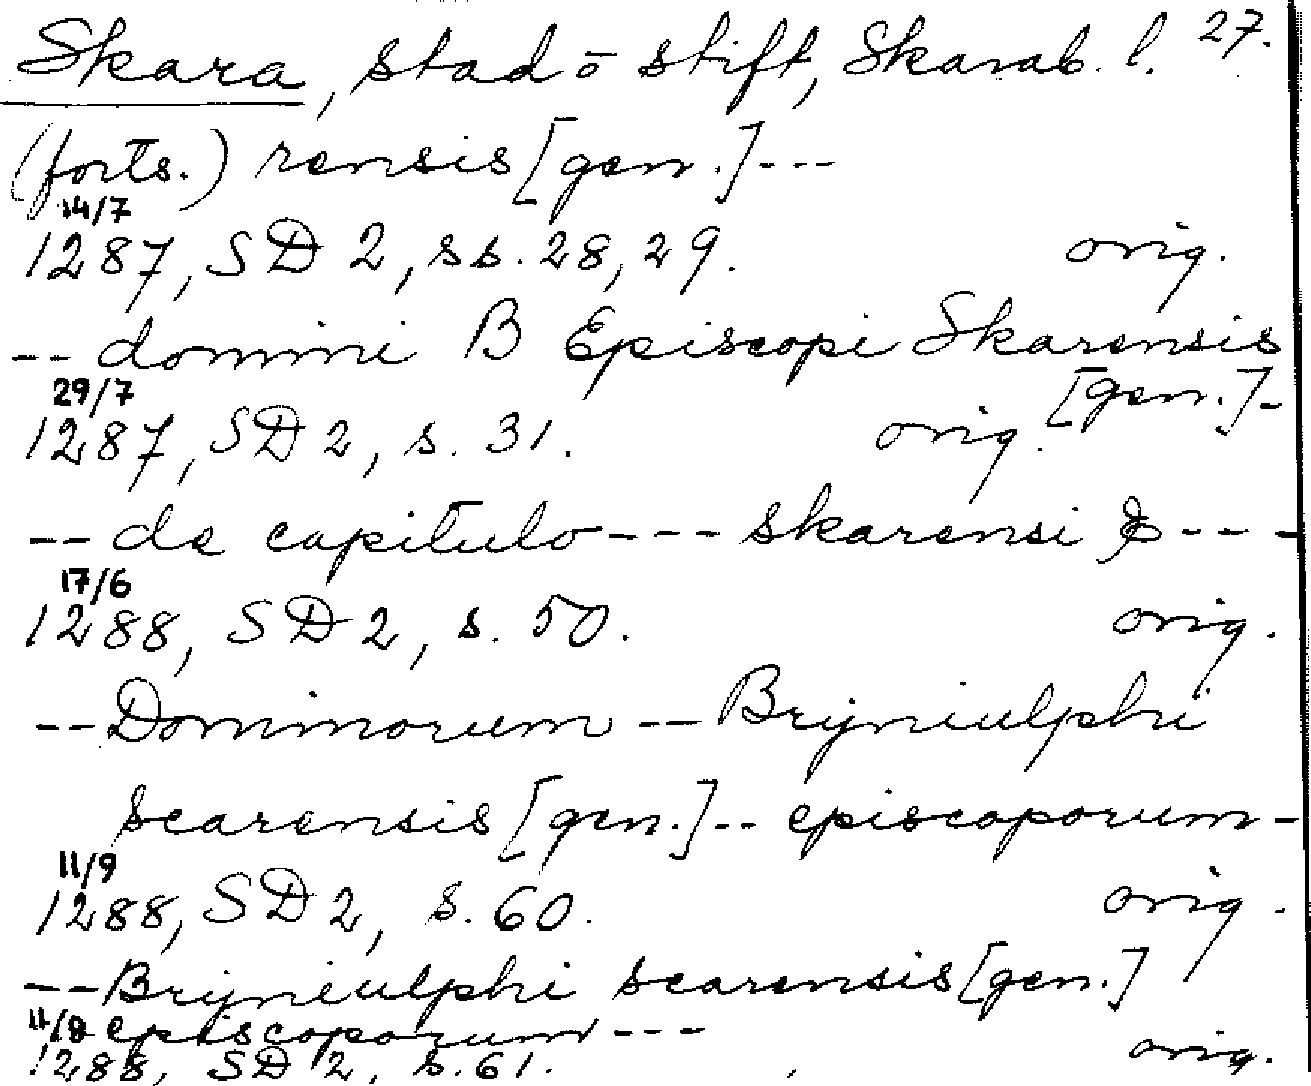 Skara, stad ō stift, Skarab. l. 27.
(forts.) rensis [gen.]---
14/7
1287, SD 2, ss. 28, 29. orig.
-- domini B Episcopi Skarensis
[gen.]-
29/7
1287, SD 2, s. 31. orig.
-- de capitulo --- skarensi & ---
17/6
1288, SD 2, s. 50. orig.
-- Dominorum -- Brijniulphi
scarensis [gen.] -- episcoporum -
11/9
1288, SD 2, s. 60. orig.
-- Brijniulphi scarensis [gen.]
episcoporum ---
1288, SD 2, s. 61. orig.